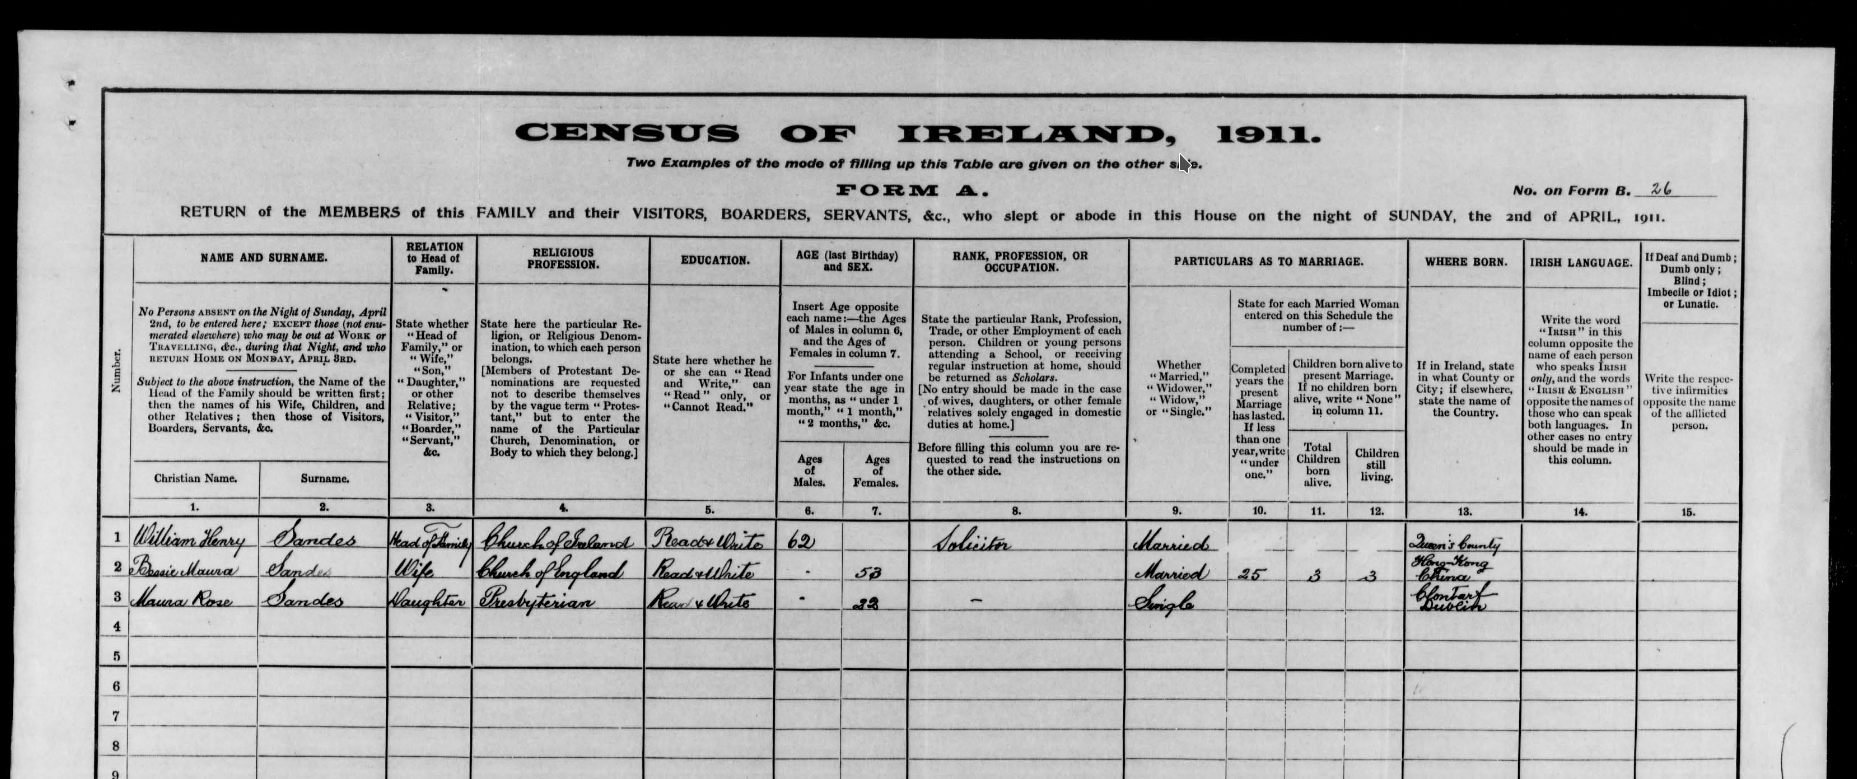 CENSUS OF IRELAND, 1911.
Two Examples of the mode of filling up this Table are given on the other side.
FORM A.
No. on Form B. 26
RETURN of the MEMBERS of this FAMILY and their VISITORS, BOARDERS, SERVANTS, &c., who slept or abode in this House on the night of SUNDAY, the 2nd of APRIL, 1911.
Number.
NAME AND SURNAME.
No Persons ABSENT on the Night of Sunday, April
2nd, to be entered here; EXCEPT those (not enu-
merated elsewhere) who may be out at WORK or
TRAVELLING, &c., during that Night, and who
RETURN HOME ON MONDAY, APRIL 3RD.
Subject to the above instruction, the Name of the
Head of the Family should be written first;
then the names of his Wife, Children, and
other Relatives; then those of Visitors,
Boarders, Servants, &c.
Christian Name.
Surname.
RELATION
to Head of
Family.
State whether
"Head of
Family," or
"Wife,"
"Son,"
"Daughter,"
or other
Relative;
"Visitor,"
"Boarder,"
"Servant,"
&c.
RELIGIOUS
PROFESSION.
State here the particular Re-
ligion, or Religious Denom-
ination, to which each person
belongs.
[Members of Protestant De-
nominations are requested
not to describe themselves
by the vague term "Protes-
tant," but to enter the
name of the Particular
Church, Denomination, or
Body to which they belong.]
EDUCATION.
State here whether he
or she can "Read
and Write," can
"Read" only, or
"Cannot Read."
AGE (last Birthday)
and SEX.
Insert Age opposite
each name:—the Ages
of Males in column 6,
and the Ages of
Females in column 7.
For Infants under one
year state the age in
months, as "under 1
month," "1 month,"
"2 months," &c.
Ages
of
Males.
Ages
of
Females.
RANK, PROFESSION, OR
OCCUPATION.
State the particular Rank, Profession,
Trade, or other Employment of each
person. Children or young persons
attending a School, or receiving
regular instruction at home, should
be returned as Scholars.
[No entry should be made in the case
of wives, daughters, or other female
relatives solely engaged in domestic
duties at home.]
Before filling this column you are re-
quested to read the instructions on
the other side.
PARTICULARS AS TO MARRIAGE.
Whether
"Married,"
"Widower,"
"Widow,"
or "Single."
State for each Married Woman
entered on this Schedule the
number of:—
Completed
years the
present
Marriage
has lasted.
If less
than one
year, write
"under
one."
Children born alive to
present Marriage.
If no children born
alive, write "None"
in column 11.
Total
Children
born
alive.
Children
still
living.
WHERE BORN.
If in Ireland, state
in what County or
City; if elsewhere,
state the name of
the Country.
IRISH LANGUAGE.
Write the word
"IRISH" in this
column opposite the
name of each person
who speaks IRISH
only, and the words
"IRISH & ENGLISH"
opposite the names of
those who can speak
both languages. In
other cases no entry
should be made in
this column.
If Deaf and Dumb;
Dumb only;
Blind;
Imbecile or Idiot;
or Lunatic.
Write the respec-
tive infirmities
opposite the name
of the afflicted
person.
1. 2. 3. 4. 5. 6. 7. 8. 9. 10. 11. 12. 13. 14. 15.
1 William Henry Sandes Head of Family Church of Ireland Read & Write 62 Solicitor Married Queen's County
2 Bessie Maura Sandes Wife Church of England Read & Write 53 Married 25 3 3 Hong-Kong China
3 Maura Rose Sandes Daughter Presbyterian Read & Write 22 Single Clontarf Dublin
4
5
6
7
8
9